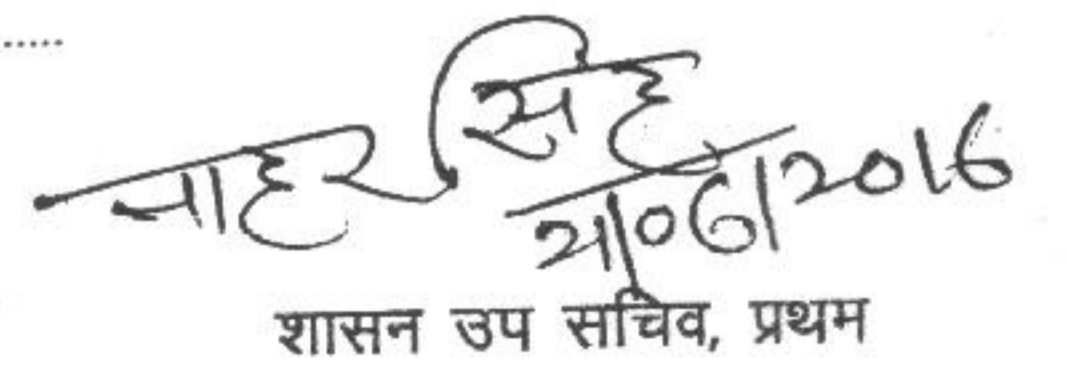 .....
नाहर सिंह
21/06/2016
शासन उप सचिव, प्रथम